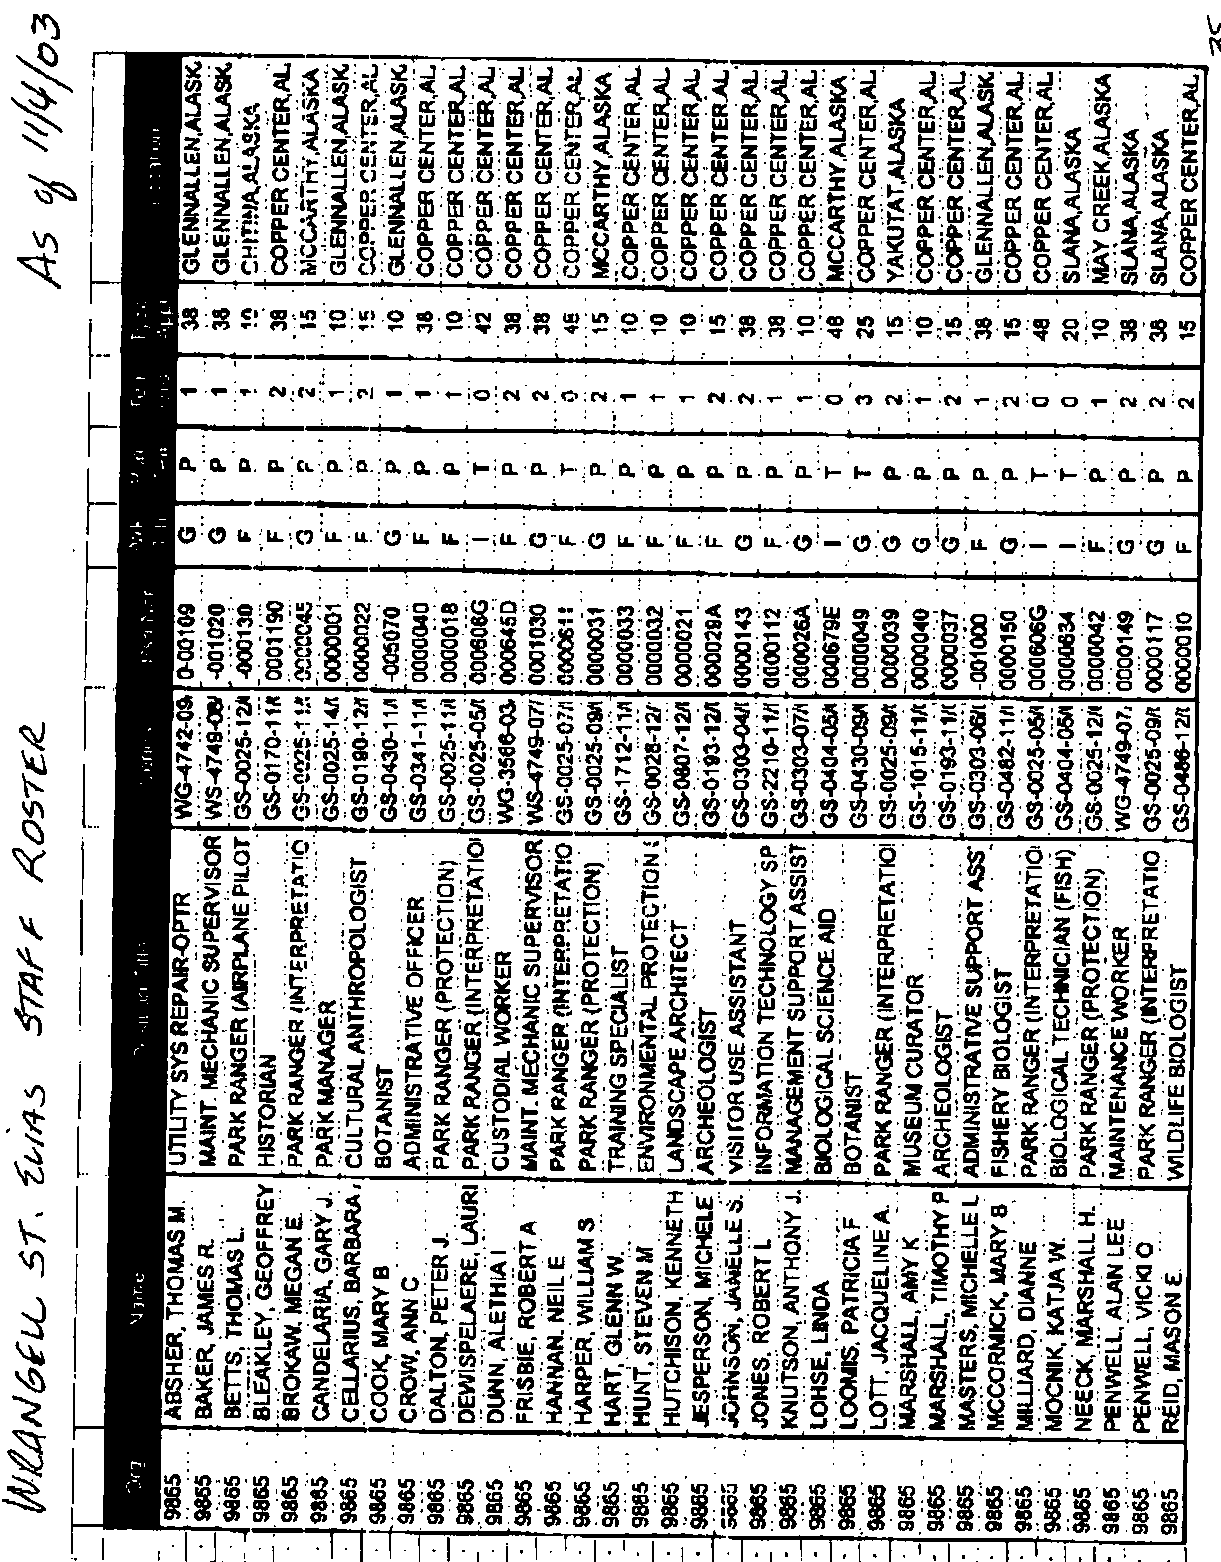 WRANGELL ST. ELIAS STAFF ROSTER As of 11/4/03
Org Name
9865 ABSHER, THOMAS M. UTILITY SYS REPAIR-OPTR WG-4742-09/ 0-00109 G P 1 38 GLENNALLEN,ALASK
9865 BAKER, JAMES R. MAINT. MECHANIC SUPERVISOR WS-4749-08/ -001020 G P 1 38 GLENNALLEN,ALASK
9865 BETTS, THOMAS L. PARK RANGER (AIRPLANE PILOT GS-0025-12/ -000130 F P 1 10 CHITINA,ALASKA
9865 BLEAKLEY, GEOFFREY HISTORIAN GS-0170-11/ 0001190 F P 2 38 COPPER CENTER,AL
9865 BROKAW, MEGAN E. PARK RANGER (INTERPRETATIO GS-0025-11/ 0000045 G P 2 15 MCCARTHY,ALASKA
9865 CANDELARIA, GARY J. PARK MANAGER GS-0025-14/ 0000001 F P 1 10 GLENNALLEN,ALASK
9865 CELLARIUS, BARBARA, CULTURAL ANTHROPOLOGIST GS-0190-12/ 0000022 F P 2 15 COPPER CENTER,AL
9865 COOK, MARY B BOTANIST GS-0430-11/ -005070 G P 1 10 GLENNALLEN,ALASK
9865 CROW, ANN C ADMINISTRATIVE OFFICER GS-0341-11/ 0000040 F P 1 38 COPPER CENTER,AL
9865 DALTON, PETER J. PARK RANGER (PROTECTION) GS-0025-11/ 0000018 F P 1 10 COPPER CENTER,AL
9865 DEWISPELAERE, LAURI PARK RANGER (INTERPRETATIO GS-0025-05/ 000606G I T 0 42 COPPER CENTER,AL
9865 DUNN, ALETHIA I CUSTODIAL WORKER WG-3566-03 000645D F P 2 38 COPPER CENTER,AL
9865 FRISBIE, ROBERT A MAINT. MECHANIC SUPERVISOR WS-4749-07/ 0001030 G P 2 38 COPPER CENTER,AL
9865 HANNAN, NEIL E. PARK RANGER (INTERPRETATIO GS-0025-07/ 0000611 F T 0 48 COPPER CENTER,AL
9865 HARPER, WILLIAM S. PARK RANGER (PROTECTION) GS-0025-09/ 0000031 G P 2 15 MCCARTHY,ALASKA
9865 HART, GLENN W. TRAINING SPECIALIST GS-1712-11/ 0000033 F P 1 10 COPPER CENTER,AL
9865 HUNT, STEVEN M ENVIRONMENTAL PROTECTION S GS-0028-12/ 0000032 F P 1 10 COPPER CENTER,AL
9865 HUTCHISON, KENNETH LANDSCAPE ARCHITECT GS-0807-12/ 0000021 F P 1 10 COPPER CENTER,AL
9865 JESPERSON, MICHELE ARCHEOLOGIST GS-0193-12/ 0000029A F P 2 15 COPPER CENTER,AL
9865 JOHNSON, JANELLE S. VISITOR USE ASSISTANT GS-0303-04/ 0000143 G P 2 38 COPPER CENTER,AL
9865 JONES, ROBERT L INFORMATION TECHNOLOGY SP GS-2210-11/ 0000112 F P 1 38 COPPER CENTER,AL
9865 KNUTSON, ANTHONY J. MANAGEMENT SUPPORT ASSIST GS-0303-07/ 0000026A G P 1 10 COPPER CENTER,AL
9865 LOHSE, LINDA BIOLOGICAL SCIENCE AID GS-0404-05/ 000679E I T 0 48 MCCARTHY,ALASKA
9865 LOOMIS, PATRICIA F BOTANIST GS-0430-09/ 0000049 G T 3 25 COPPER CENTER,AL
9865 LOTT, JACQUELINE A. PARK RANGER (INTERPRETATIO GS-0025-09/ 0000039 G P 2 15 YAKUTAT,ALASKA
9865 MARSHALL, AMY K MUSEUM CURATOR GS-1015-11/ 0000040 G P 1 10 COPPER CENTER,AL
9865 MARSHALL, TIMOTHY P ARCHEOLOGIST GS-0193-11/ 0000037 G P 2 15 COPPER CENTER,AL
9865 MASTERS, MICHELLE L ADMINISTRATIVE SUPPORT ASS GS-0303-06/ -001000 F P 1 38 GLENNALLEN,ALASK
9865 MCCORMICK, MARY B FISHERY BIOLOGIST GS-0482-11/ 0000150 G P 2 15 COPPER CENTER,AL
9865 MILLIARD, DIANNE PARK RANGER (INTERPRETATIO GS-0025-05/ 000606G I T 0 48 COPPER CENTER,AL
9865 MOCNIK, KATJA W. BIOLOGICAL TECHNICIAN (FISH) GS-0404-05/ 0000634 I T 0 20 SLANA,ALASKA
9865 NEECK, MARSHALL H. PARK RANGER (PROTECTION) GS-0025-12/ 0000042 F P 1 10 MAY CREEK,ALASKA
9865 PENWELL, ALAN LEE MAINTENANCE WORKER WG-4749-07/ 0000149 G P 2 38 SLANA,ALASKA
9865 PENWELL, VICKI O PARK RANGER (INTERPRETATIO GS-0025-09/ 0000117 G P 2 38 SLANA,ALASKA
9865 REID, MASON E. WILDLIFE BIOLOGIST GS-0486-12/ 0000010 F P 2 15 COPPER CENTER,AL